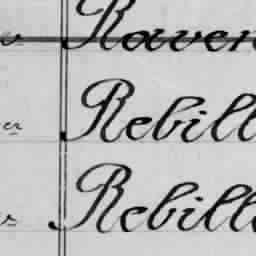 Raven
er Rebill
Rebill